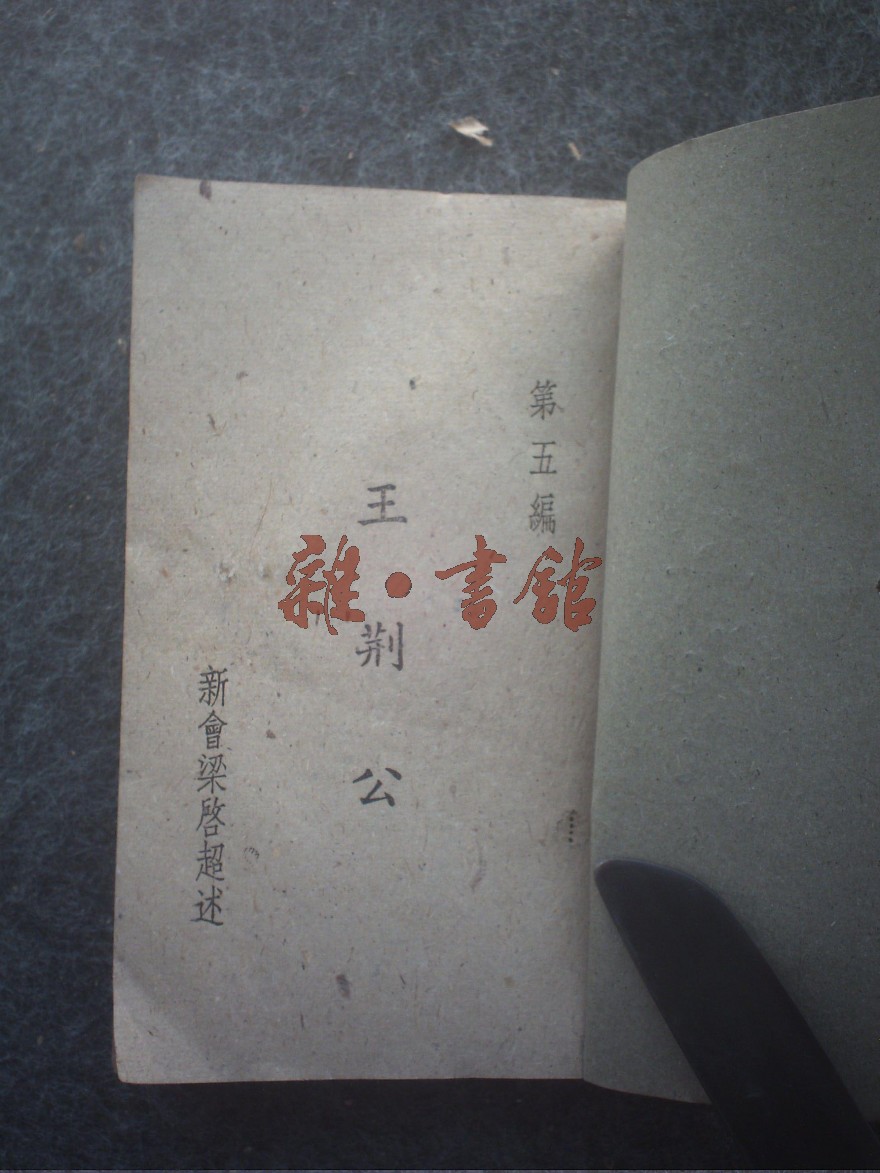 第五編
王荆公
新會梁啓超述
雜·書館